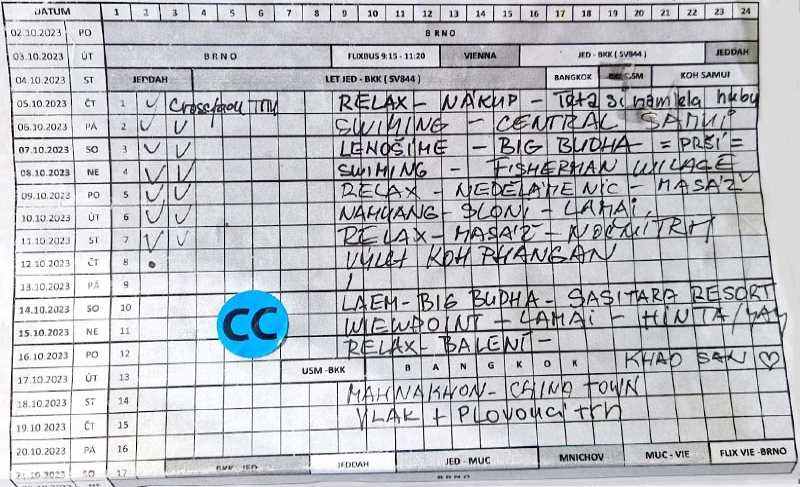 DATUM 1 2 3 4 5 6 7 8 9 10 11 12 13 14 15 16 17 18 19 20 21 22 23 24
02.10.2023 PO BRNO
03.10.2023 ÚT BRNO FLIXBUS 9:15 - 11:20 VIENNA JED - BKK ( SV844 ) JEDDAH
04.10.2023 ST JEDDAH LET JED - BKK ( SV844 ) BANGKOK KOH SAMUI
05.10.2023 ČT 1 RELAX - NÁKUP - Táta si
06.10.2023 PÁ 2 SWIMING - CENTRAL SAMUI
07.10.2023 SO 3 LENOŠÍME - BIG BUDHA = PRŠÍ =
08.10.2023 NE 4 SWIMING - FISHERMAN WILAGE
09.10.2023 PO 5 RELAX - NEDĚLÁME NIC - MASÁŽ
10.10.2023 ÚT 6 NAMUANG - SLONI - LAMAI,
11.10.2023 ST 7 RELAX - MASÁŽ - NOČNÍ TRH
12.10.2023 ČT 8 VÝLET KOH PHANGAN
13.10.2023 PÁ 9
14.10.2023 SO 10 LAEM - BIG BUDHA - SASITARA RESORT
15.10.2023 NE 11 WIEWPOINT - LAMAI - HINTA/YAY
CC
16.10.2023 PO 12 RELAX - BALENÍ -
17.10.2023 ÚT 13 USM -BKK BANGKOK KHAO SAN
18.10.2023 ST 14 MAHNAKHON - CHINA TOWN
19.10.2023 ČT 15 VLAK + PLOVOUCÍ TRH
20.10.2023 PÁ 16
21.10.2023 SO 17 BKK - JED JEDDAH JED - MUC MNICHOV MUC - VIE FLIX VIE -BRNO
BRNO